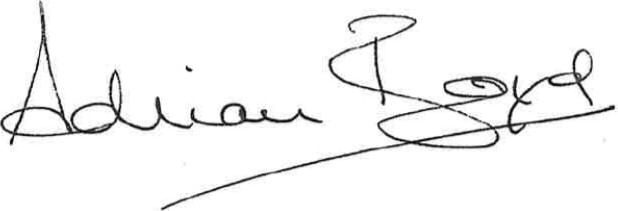 Adrian Boyd